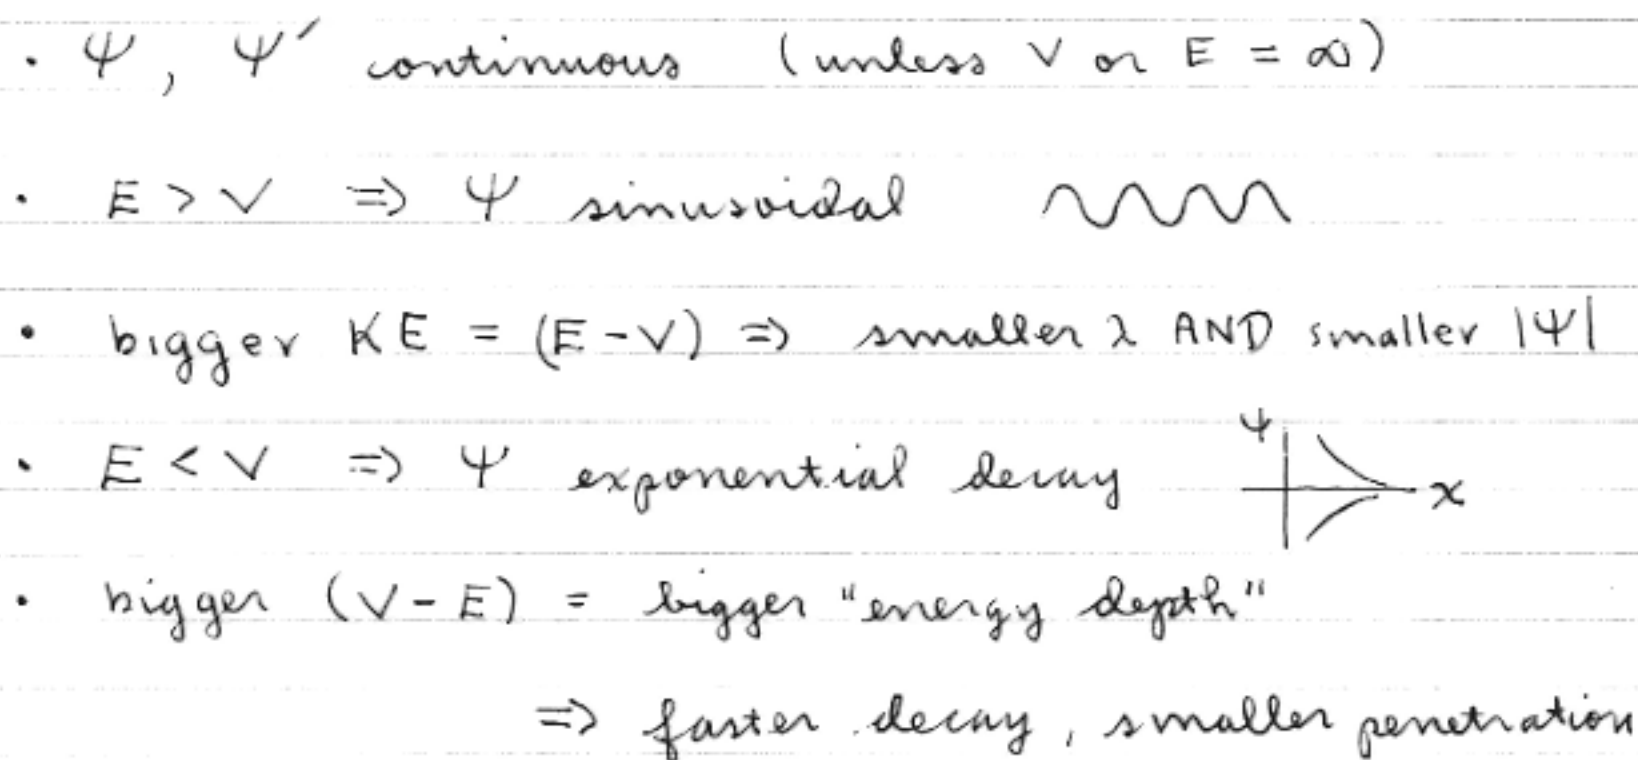 · ψ, ψ′ continuous (unless V or E = ∞)
· E > V ⇒ ψ sinusoidal
· bigger KE = (E-V) ⇒ smaller λ AND smaller |ψ|
· E < V ⇒ ψ exponential decay ψ x
· bigger (V-E) = bigger "energy depth"
⇒ faster decay, smaller penetration